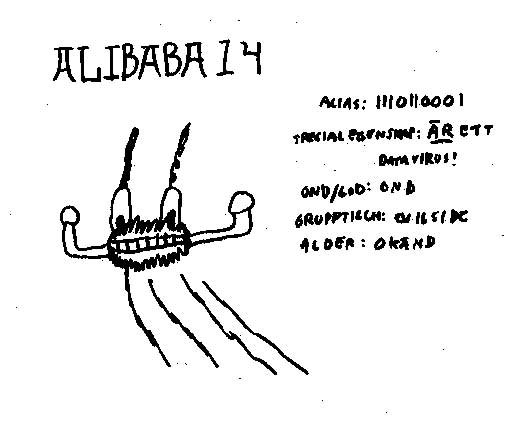 ALIBABA 14
ALIAS: 1110110001
SPECIALEGENSKAP: ÄR ETT
DATAVIRUS!
OND/GOD: OND
GRUPPTILLH: EVILSIDE
ÅLDER: OKÄND